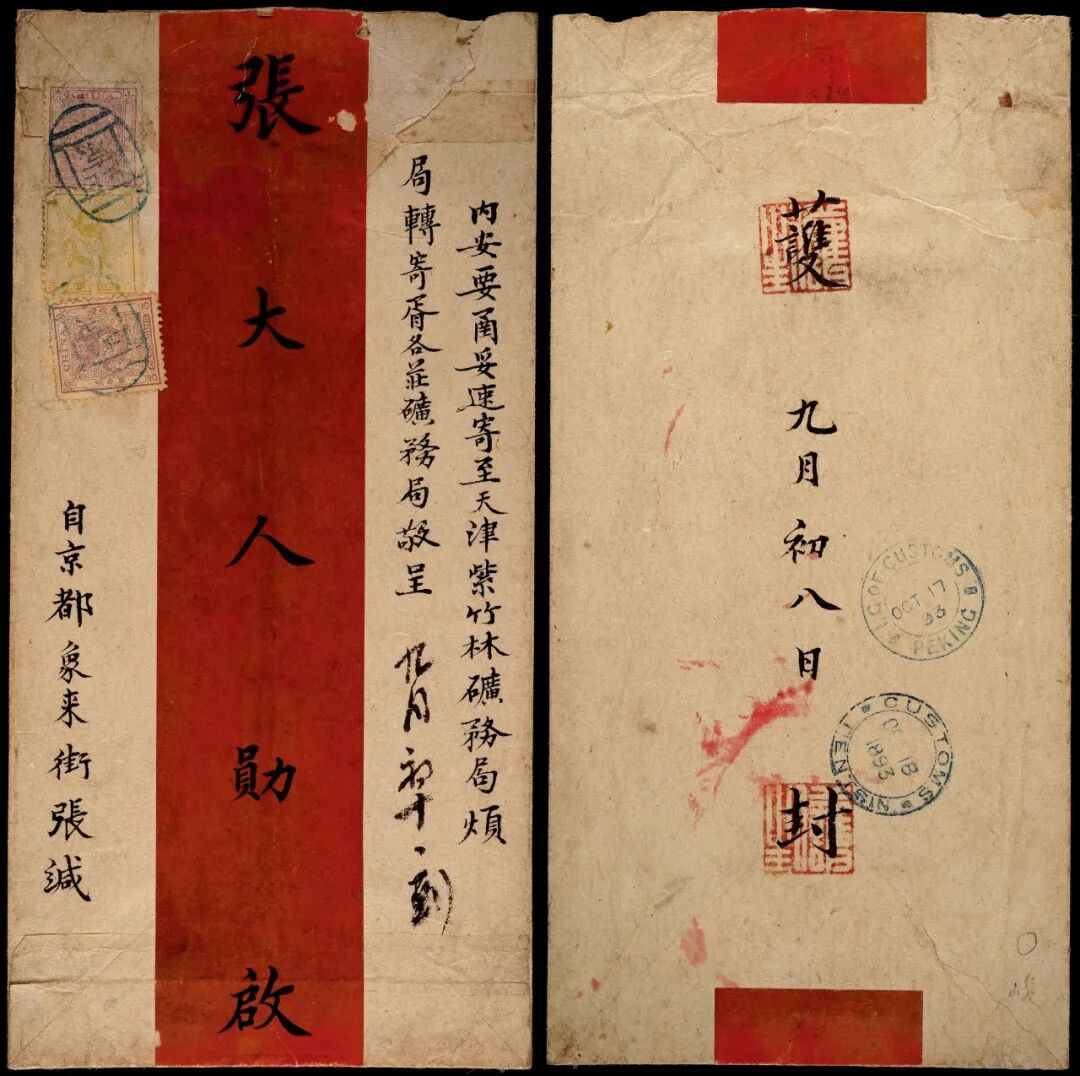 內安要甬妥速寄至天津紫竹林礦務局煩
局轉寄胥各莊礦務局敬呈 九月初十日到
張大人勛啟
自京都象来街張緘
護
九月初八日
封
I.G. OF CUSTOMS PEKING
OCT 17
93
CUSTOMS TIENTSIN
18
1893